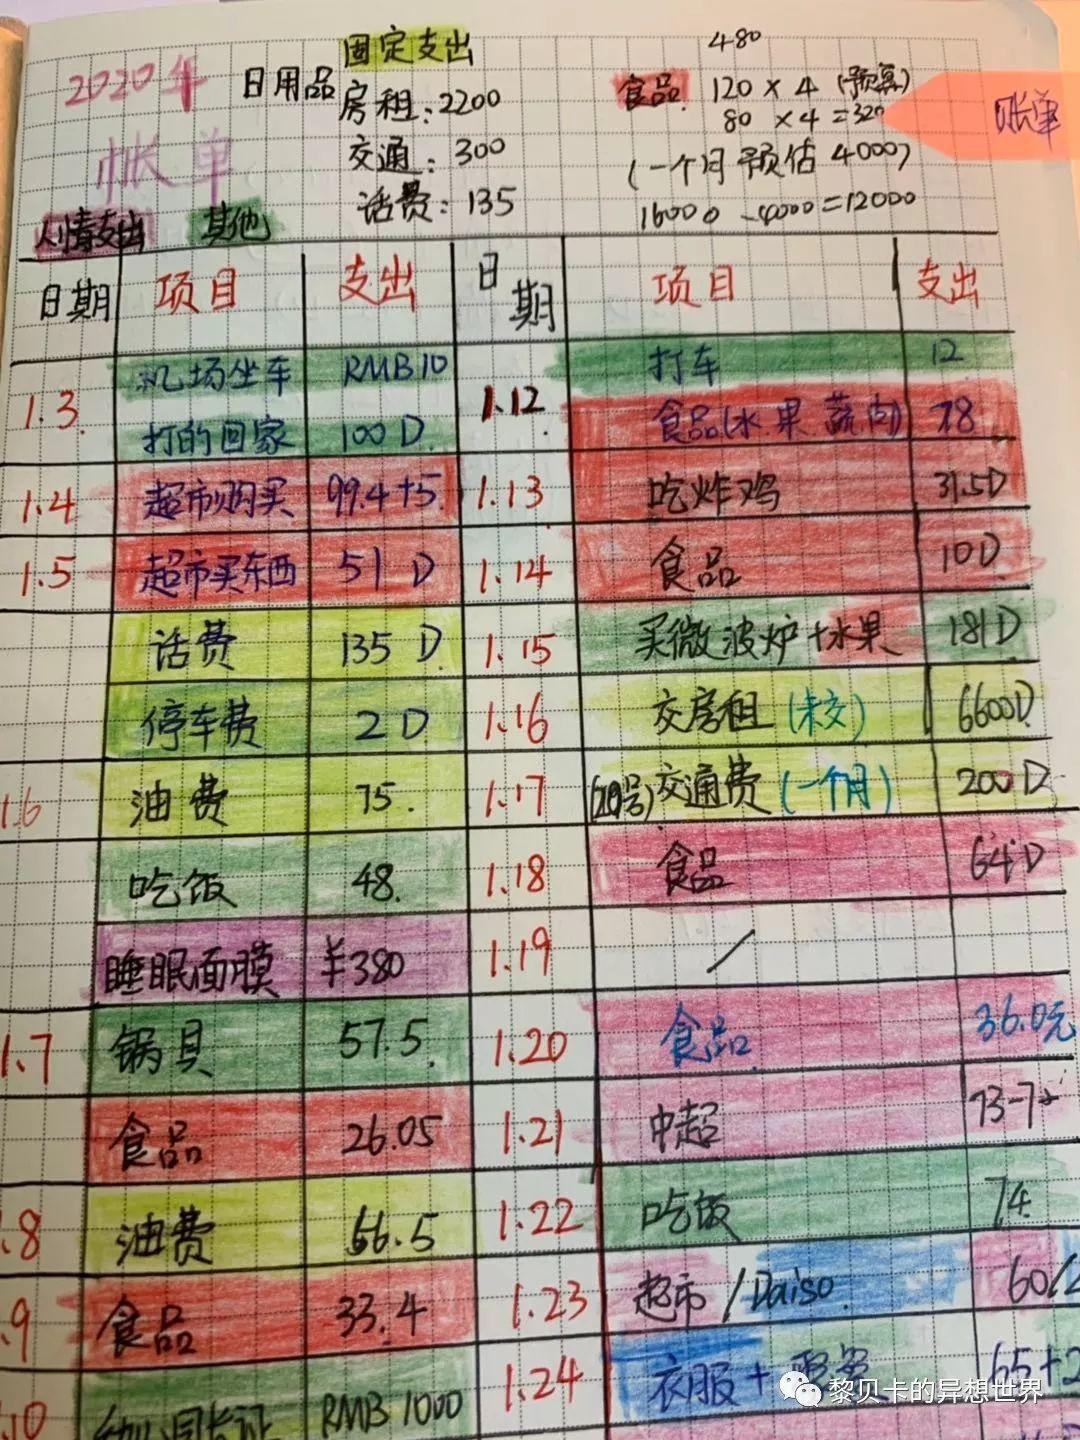 2020年
帐单
日用品
固定支出
房租:2200
交通:300
话费:135
480
食品 120×4 (预算)
80×4=320
(一个月预估4000)
16000-4000=12000
账单
人情支出 其他
日期 项目 支出 日期 项目 支出
1.3 机场坐车 RMB10
打的回家 100D
1.4 超市购买 99.4+5
1.5 超市买东西 51D
话费 135D
停车费 2D
1.6 油费 75.
吃饭 48.
睡眠面膜 ¥380
1.7 锅具 57.5
食品 26.05
.8 油费 66.5
.9 食品 33.4
.10 RMB1000
1.12 打车 12
食品(水果蔬肉) 78
1.13 吃炸鸡 31.5D
1.14 食品 10D
1.15 买微波炉+水果 181D
1.16 交房租(未交) 6600D
1.17 (20号)交通费(一个月) 200D
1.18 食品 64D
1.19 /
1.20 食品 36.0元
1.21 中超
1.22 吃饭 74
1.23 超市/Daiso 60/2
1.24 衣服+ 65+2
黎贝卡的异想世界